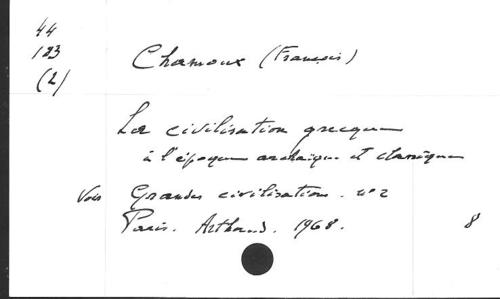 44
183
(2)
Chamoux (François)
La civilisation grecque
à l'époque archaïque et classique
Voir Grandes civilisations. n° 2
Paris. Arthaud. 1968. 8